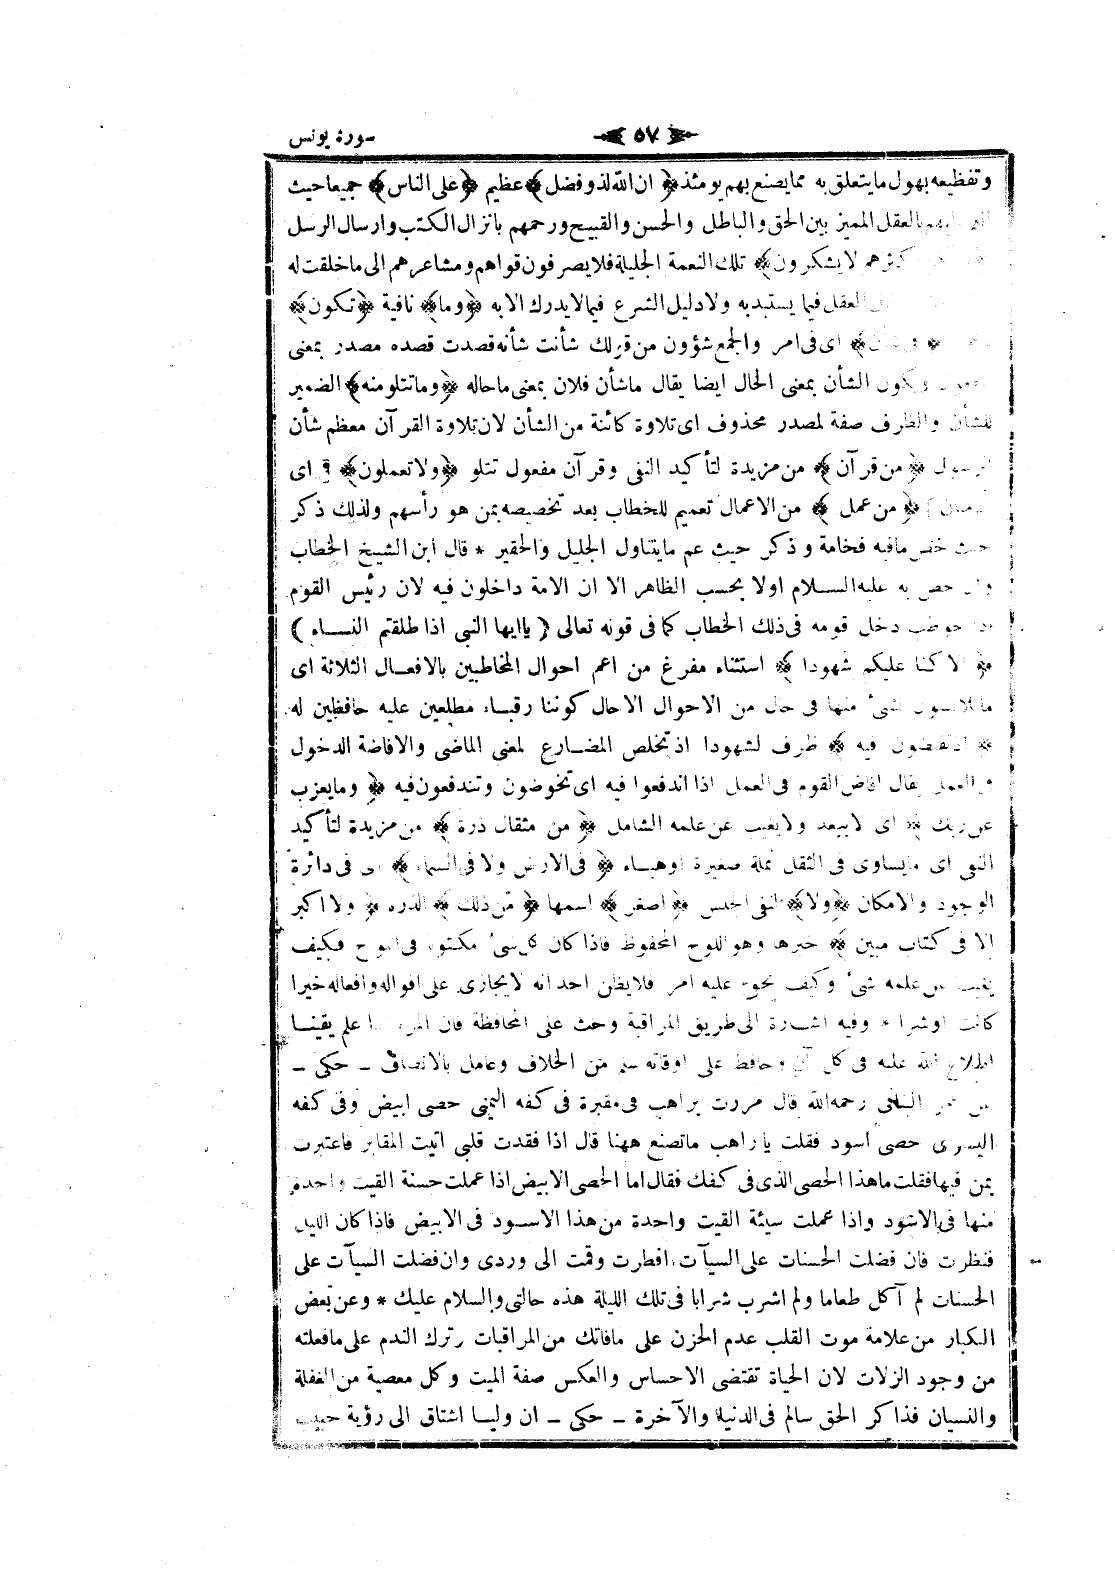 سورة يونس
٥٧
وتفظيعه بهول ما يتعلق به مما يصنع بهم يومئذ ﴿ ان الله لذو فضل ﴾ عظيم ﴿ على الناس ﴾ جميعا حيث
بالعقل المميز بين الحق والباطل والحسن والقبيح ورحمهم بانزال الكتب وارسال الرسل
كثرهم لا يشكرون ﴾ تلك النعمة الجليلة فلا يصرفون قواهم ومشاعرهم الى ما خلقت له
العقل فيما يستبد به ولا دليل الشرع فيما لا يدرك الا به ﴿ وما ﴾ نافية ﴿ تكون ﴾
شأن ﴾ اى فى امر والجمع شؤون من قولك شأنت شأنه قصدت قصده مصدر بمعنى
ويكون الشأن بمعنى الحال ايضا يقال ما شأن فلان بمعنى ما حاله ﴿ وما تتلو منه ﴾ الضمير
للشأن والظرف صفة لمصدر محذوف اى تلاوة كائنة من الشأن لان تلاوة القرآن معظم شأن
الرسول ﴿ من قرآن ﴾ من مزيدة لتأكيد النفى وقرآن مفعول تتلو ﴿ ولا تعملون ﴾ اى
﴿ من عمل ﴾ من الاعمال تعميم للخطاب بعد تخصيصه بمن هو رأسهم ولذلك ذكر
حيث خص ما فيه فخامة وذكر حيث عم ما يتناول الجليل والحقير * قال ابن الشيخ الخطاب
وان خص به عليه السلام اولا بحسب الظاهر الا ان الامة داخلون فيه لان رئيس القوم
اذا خوطب دخل قومه فى ذلك الخطاب كما فى قوله تعالى ( يا ايها النبى اذا طلقتم النساء )
﴿ الا كنا عليكم شهودا ﴾ استثناء مفرغ من اعم احوال المخاطبين بالافعال الثلاثة اى
ما تلابسون بشئ منها فى حال من الاحوال الا حال كوننا رقباء مطلعين عليه حافظين له
﴿ اذ تفيضون فيه ﴾ ظرف لشهودا اذ تخلص المضارع لمعنى الماضى والافاضة الدخول
فى العمل يقال افاض القوم فى العمل اذا اندفعوا فيه اى تخوضون وتندفعون فيه ﴿ وما يعزب
عن ربك ﴾ اى لا يبعد ولا يغيب عن علمه الشامل ﴿ من مثقال ذرة ﴾ من مزيدة لتأكيد
النفى اى ما يساوى فى الثقل نملة صغيرة او هباء ﴿ فى الارض ولا فى السماء ﴾ اى فى دائرة
الوجود والامكان ﴿ ولا ﴾ لنفى الجنس ﴿ اصغر ﴾ اسمها ﴿ من ذلك ﴾ الذرة ﴿ ولا اكبر
الا فى كتاب مبين ﴾ خبرها وهو اللوح المحفوظ فاذا كان كل شئ مكتوبا فى اللوح فكيف
يغيب عن علمه شئ وكيف يخفى عليه امر فلا يظن احد انه لا يجازى على اقواله وافعاله خيرا
كانت او شرا * وفيه اشارة الى طريق المراقبة وحث على المحافظة فان المرء اذا علم يقينا
اطلاع الله عليه فى كل آن وحافظ على اوقاته سلم من الخلاف وعامل بالانصاف ـ حكى ـ
عن البلخى رحمه الله قال مررت براهب فى مقبرة فى كفه اليمنى حصى ابيض وفى كفه
اليسرى حصى اسود فقلت يا راهب ما تصنع ههنا قال اذا فقدت قلبى اتيت المقابر فاعتبرت
بمن فيها فقلت ما هذا الحصى الذى فى كفك فقال اما الحصى الابيض اذا عملت حسنة القيت واحدة
منها فى الاسود واذا عملت سيئة القيت واحدة من هذا الاسود فى الابيض فاذا كان الليل
فنظرت فان فضلت الحسنات على السيآت افطرت وقمت الى وردى وان فضلت السيآت على
الحسنات لم آكل طعاما ولم اشرب شرابا فى تلك الليلة هذه حالتى والسلام عليك * وعن بعض
الكبار من علامة موت القلب عدم الحزن على ما فاتك من المراقبات وترك الندم على ما فعلته
من وجود الزلات لان الحياة تقتضى الاحساس والعكس صفة الميت وكل معصية من الغفلة
والنسيان فذاكر الحق سالم فى الدنيا والآخرة ـ حكى ـ ان وليا اشتاق الى رؤية حبيب